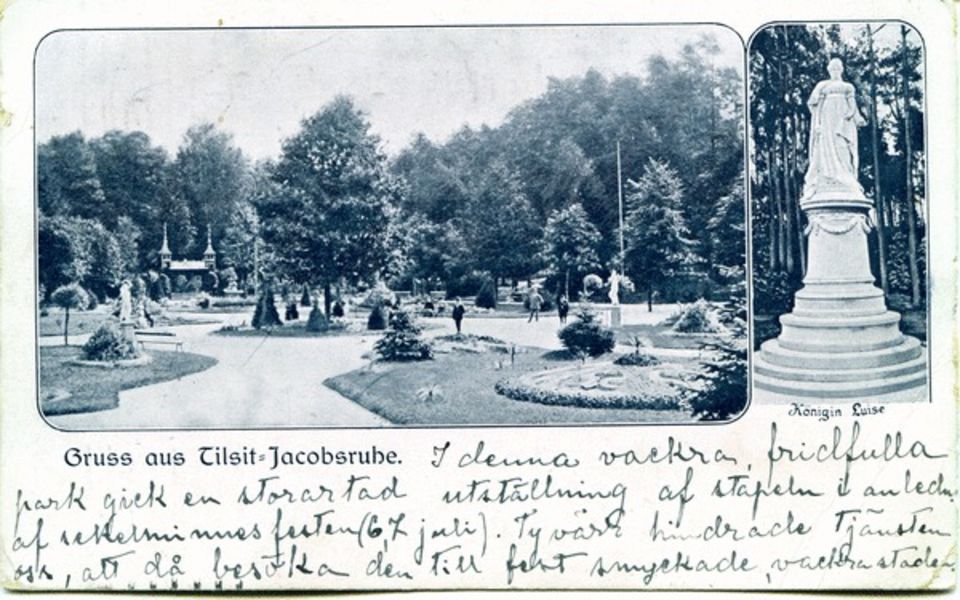 Königin Luise
Gruss aus Tilsit-Jacobsruhe. I denna vackra, fridfulla
park gick en storartad utställning af stapeln i anledn.
af sekelminnesfesten (6,7 juli). Tyvärr hindrade tjänsten
oss, att då besöka den till fest smyckade, vackra staden.